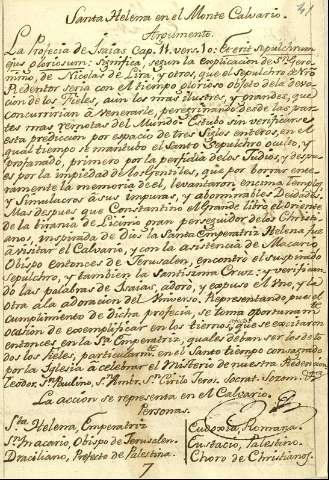 41
Santa Helena en el Monte Calvario.
Argumento.
La Profecia de Isaias Cap. 11. vers. 10: Et erit sepulchrum
ejus gloriosum: Significa, segun la explicacion de Sn. Gero-
nimo, de Nicolas de Lira, y otros, que el Sepulchro de Nro.
Redentor seria con el tiempo glorioso objeto de la devo-
cion de los Fieles, aun los mas ilustres, y grandes, que
concurririan à venerarle, peregrinando desde las par-
tes mas remotas del Mundo. Estubo sin verificarse
esta prediccion por espacio de tres Siglos enteros, en el
qual tiempo se mantubo el Santo Sepulcro oculto, y
profanado, primero por la perfidia de los Judios, y despu-
es por la impiedad de los Gentiles, que por borrar ente-
ramente la memoria de el, levantaron encima Templos,
y Simulacros à sus impuras, y abominables Deidades.
Mas despues que Constantino el Grande librò el Oriente
de la tirania de Licinio gran perseguidor de los Christi-
anos, inspirada de Dios la Santa Emperatriz Helena fue
à visitar el Calvario, y con la asistencia de Macario
Obispo entonces de Jerusalen, encontrò el suspirado
Sepulchro, y tambien la Santisima Cruz: y verifican-
do las palabras de Isaias, adorò, y expuso el uno, y la
otra à la adoracion del Universo. Representando pues el
cumplimiento de dicha profecia, se toma oportunamte.
ocasion de exemplificar en los tiernos, que se excitaron
entonces en la Sta. Emperatriz, quales deban ser los de to-
dos los fieles, particularmte. en el Santo tiempo consagrado
por la Iglesia à celebrar el Misterio de nuestra Redencion
Teodor. Sn. Paulino, Sn. Ambr. Sn. Cirilo Jeros. Socrat. Sozom.
La accion se representa en el Calvario.
Personas.
Sta. Helena, Emperatriz
Sn. Macario, Obispo de Jerusalen.
Draciliano, Prefecto de Palestina.
Eudoxia, Romana.
Eustacio, Palestino.
Choro de Christianos.
7